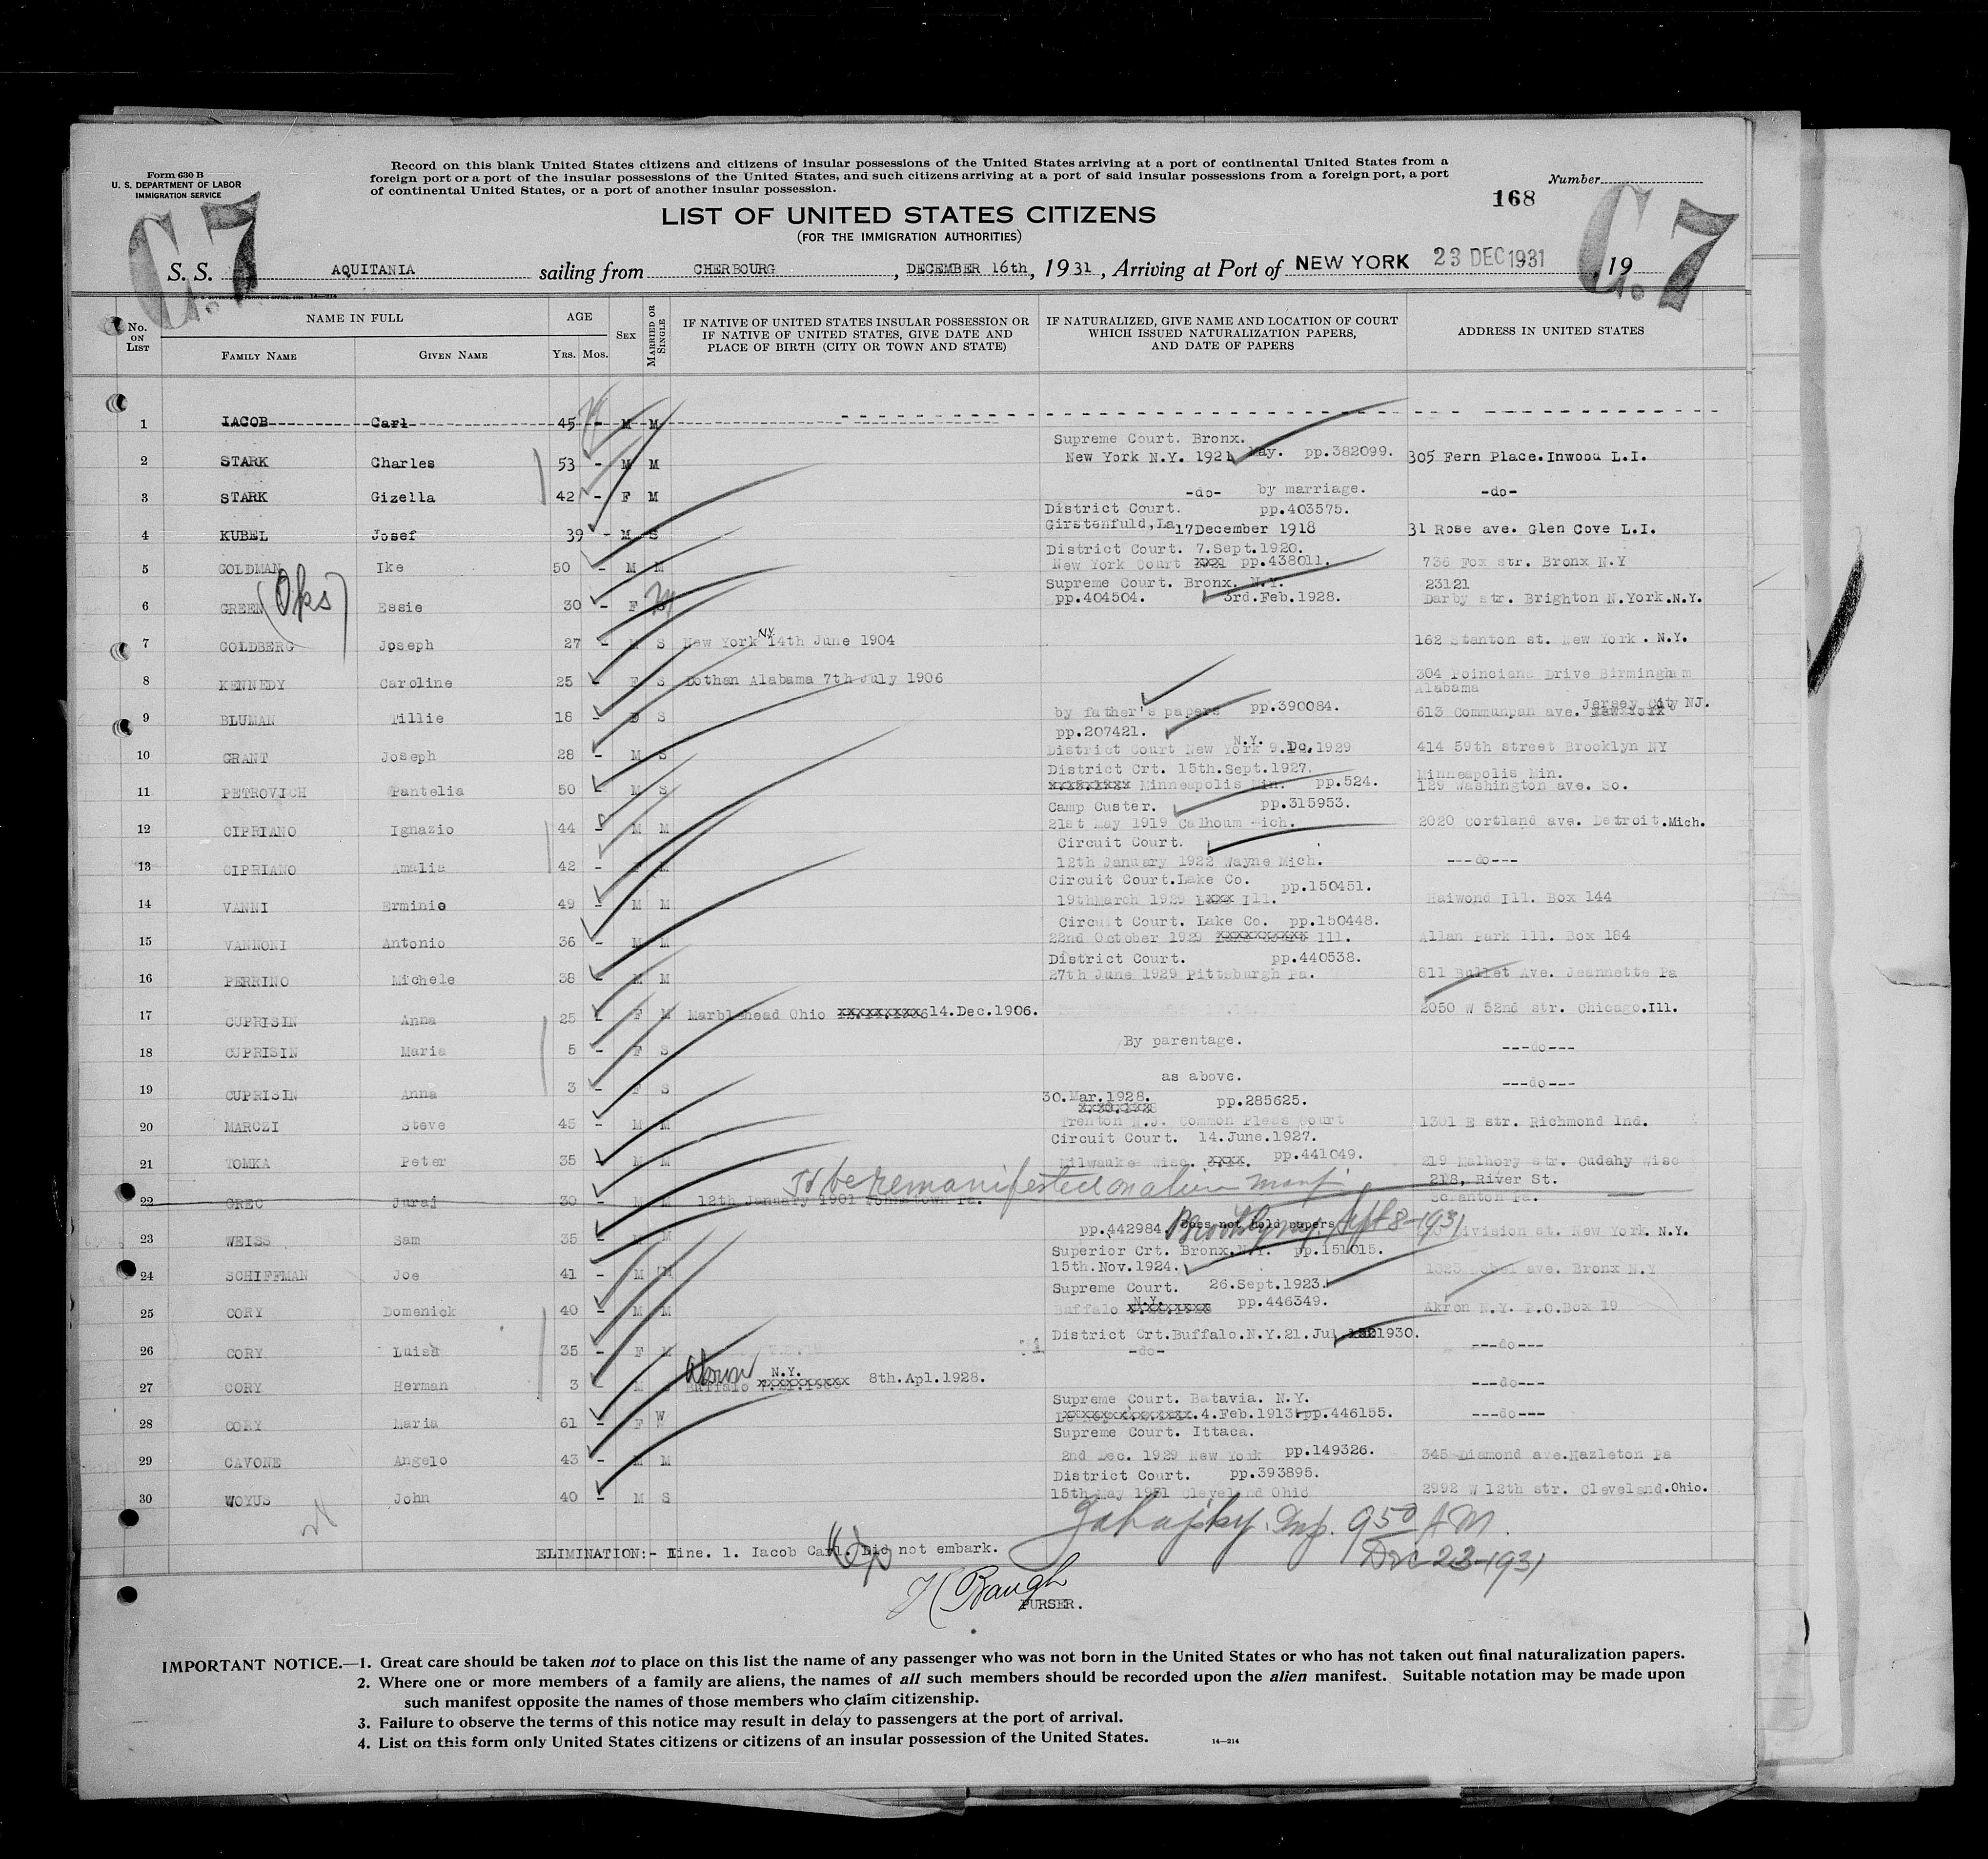 Form 630 B
U. S. DEPARTMENT OF LABOR
IMMIGRATION SERVICE
Record on this blank United States citizens and citizens of insular possessions of the United States arriving at a port of continental United States from a
foreign port or a port of the insular possessions of the United States, and such citizens arriving at a port of said insular possessions from a foreign port, a port
of continental United States, or a port of another insular possession.
Number
168
C.7 C.7
LIST OF UNITED STATES CITIZENS
(FOR THE IMMIGRATION AUTHORITIES)
S. S. AQUITANIA sailing from CHERBOURG, DECEMBER 16th, 1931, Arriving at Port of NEW YORK 23 DEC 1931, 19
No. ON LIST
NAME IN FULL
FAMILY NAME GIVEN NAME
AGE
YRS. MOS.
SEX
MARRIED OR SINGLE
IF NATIVE OF UNITED STATES INSULAR POSSESSION OR
IF NATIVE OF UNITED STATES, GIVE DATE AND
PLACE OF BIRTH (CITY OR TOWN AND STATE)
IF NATURALIZED, GIVE NAME AND LOCATION OF COURT
WHICH ISSUED NATURALIZATION PAPERS,
AND DATE OF PAPERS
ADDRESS IN UNITED STATES
1 IACOB Carl 45 - M M
Supreme Court. Bronx.
2 STARK Charles 53 - M M New York N.Y. 1921 May. pp.382099. 305 Fern Place. Inwood L.I.
3 STARK Gizella 42 - F M -do- by marriage. -do-
District Court. pp.403575.
4 KUBEL Josef 39 - M S Girstenfuld, La 17December 1918 31 Rose ave. Glen Cove L.I.
District Court. 7.Sept.1920.
5 GOLDMAN Ike 50 - M M New York Court pp.438011. 736 Fox str. Bronx N.Y
Supreme Court. Bronx. N.Y. 23121
6 GREEN (Oks) Essie 30 - F M pp.404504. 3rd.Feb.1928. Darby str. Brighton N.York.N.Y.
7 GOLDBERG Joseph 27 - M S New York NY 14th June 1904 162 Stanton st. New York . N.Y.
8 KENNEDY Caroline 25 - F S Dothan Alabama 7th July 1906 304 Poinciana Drive Birmingham
Alabama
9 BLUMAN Tillie 18 - D S by father's papers pp.390084. 613 Communpan ave. Jersey City NJ.
pp.207421.
10 GRANT Joseph 28 - M S District Court New York N.Y. 9. Dc. 1929 414 59th street Brooklyn NY
District Crt. 15th.Sept.1927. Minneapolis Min.
11 PETROVICH Pantelia 50 - M S Minneapolis Min. pp.524. 129 Washington ave. So.
Camp Custer. pp.315953.
12 CIPRIANO Ignazio 44 - M M 21st May 1919 Calhoum Mich. 2020 Cortland ave. Detroit.Mich.
Circuit Court.
13 CIPRIANO Amalia 42 - F M 12th January 1922 Wayne Mich. ---do---
Circuit Court.Lake Co. pp.150451.
14 VANNI Erminio 49 - M M 19thMarch 1929 Ill. Haiwond Ill. Box 144
Circuit Court. Lake Co. pp.150448.
15 VANNONI Antonio 36 - M M 22nd October 1929 Ill. Allan Park Ill. Box 184
District Court. pp.440538.
16 PERRINO Michele 38 - M M 27th June 1929 Pittsburgh Pa. 811 Bullet Ave. Jeannette Pa
17 CUPRISIN Anna 25 - F M Marblehead Ohio 14.Dec.1906. 2050 W 52nd str. Chicago.Ill.
18 CUPRISIN Maria 5 - F S By parentage. ---do---
19 CUPRISIN Anna 3 - F S as above. ---do---
30.Mar.1928. pp.285625.
20 MARCZI Steve 45 - M M Trenton N.J. Common Pleas Court 1301 E str. Richmond Ind.
Circuit Court. 14.June.1927.
21 TOMKA Peter 35 - M M Milwaukee Wisc. pp.441049. 219 Malhory str. Cudahy Wisc
To be remanifested on alien manf
218, River St.
22 GREC Juraj 30 - M M 12th January 1901 Johnstown Pa. Scranton Pa.
Does not hold papers
23 WEISS Sam 35 - M M pp.442984. Brooklyn ny. Sept 8-1931 Division st. New York. N.Y.
Superior Crt. Bronx.N.Y. pp.151015.
24 SCHIFFMAN Joe 41 - M M 15th.Nov.1924. ave. Bronx N.Y
Supreme Court. 26.Sept.1923.
25 CORY Domenick 40 - M M Buffalo N.Y. pp.446349. Akron N.Y. P.O.Box 19
District Crt.Buffalo.N.Y.21.Jul 1930.
26 CORY Luisa 35 - F M -do- ---do---
27 CORY Herman 3 - M S Buffalo Akron N.Y. 8th.Apl.1928. ---do---
Supreme Court. Batavia. N.Y.
28 CORY Maria 61 - F W 4.Feb.1913 pp.446155. ---do---
Supreme Court. Ittaca.
29 CAVONE Angelo 43 - M M 2nd Dec. 1929 New York pp.149326. 345 Diamond ave.Hazleton Pa
District Court. pp.393895.
30 WOYUS John 40 - M S 15th May 1931 Cleveland Ohio 2992 W 12th str. Cleveland.Ohio.
Insp. 9 50 AM.
Dec 22-1931
ELIMINATION:- Line. 1. Iacob Carl. Did not embark.
Baugh
PURSER.
IMPORTANT NOTICE.—1. Great care should be taken not to place on this list the name of any passenger who was not born in the United States or who has not taken out final naturalization papers.
2. Where one or more members of a family are aliens, the names of all such members should be recorded upon the alien manifest. Suitable notation may be made upon
such manifest opposite the names of those members who claim citizenship.
3. Failure to observe the terms of this notice may result in delay to passengers at the port of arrival.
4. List on this form only United States citizens or citizens of an insular possession of the United States.
14—214